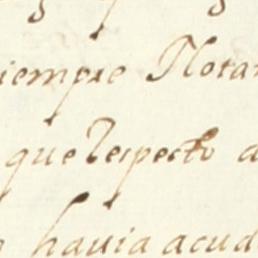 siempre Notar
que Respecto a
havia acud